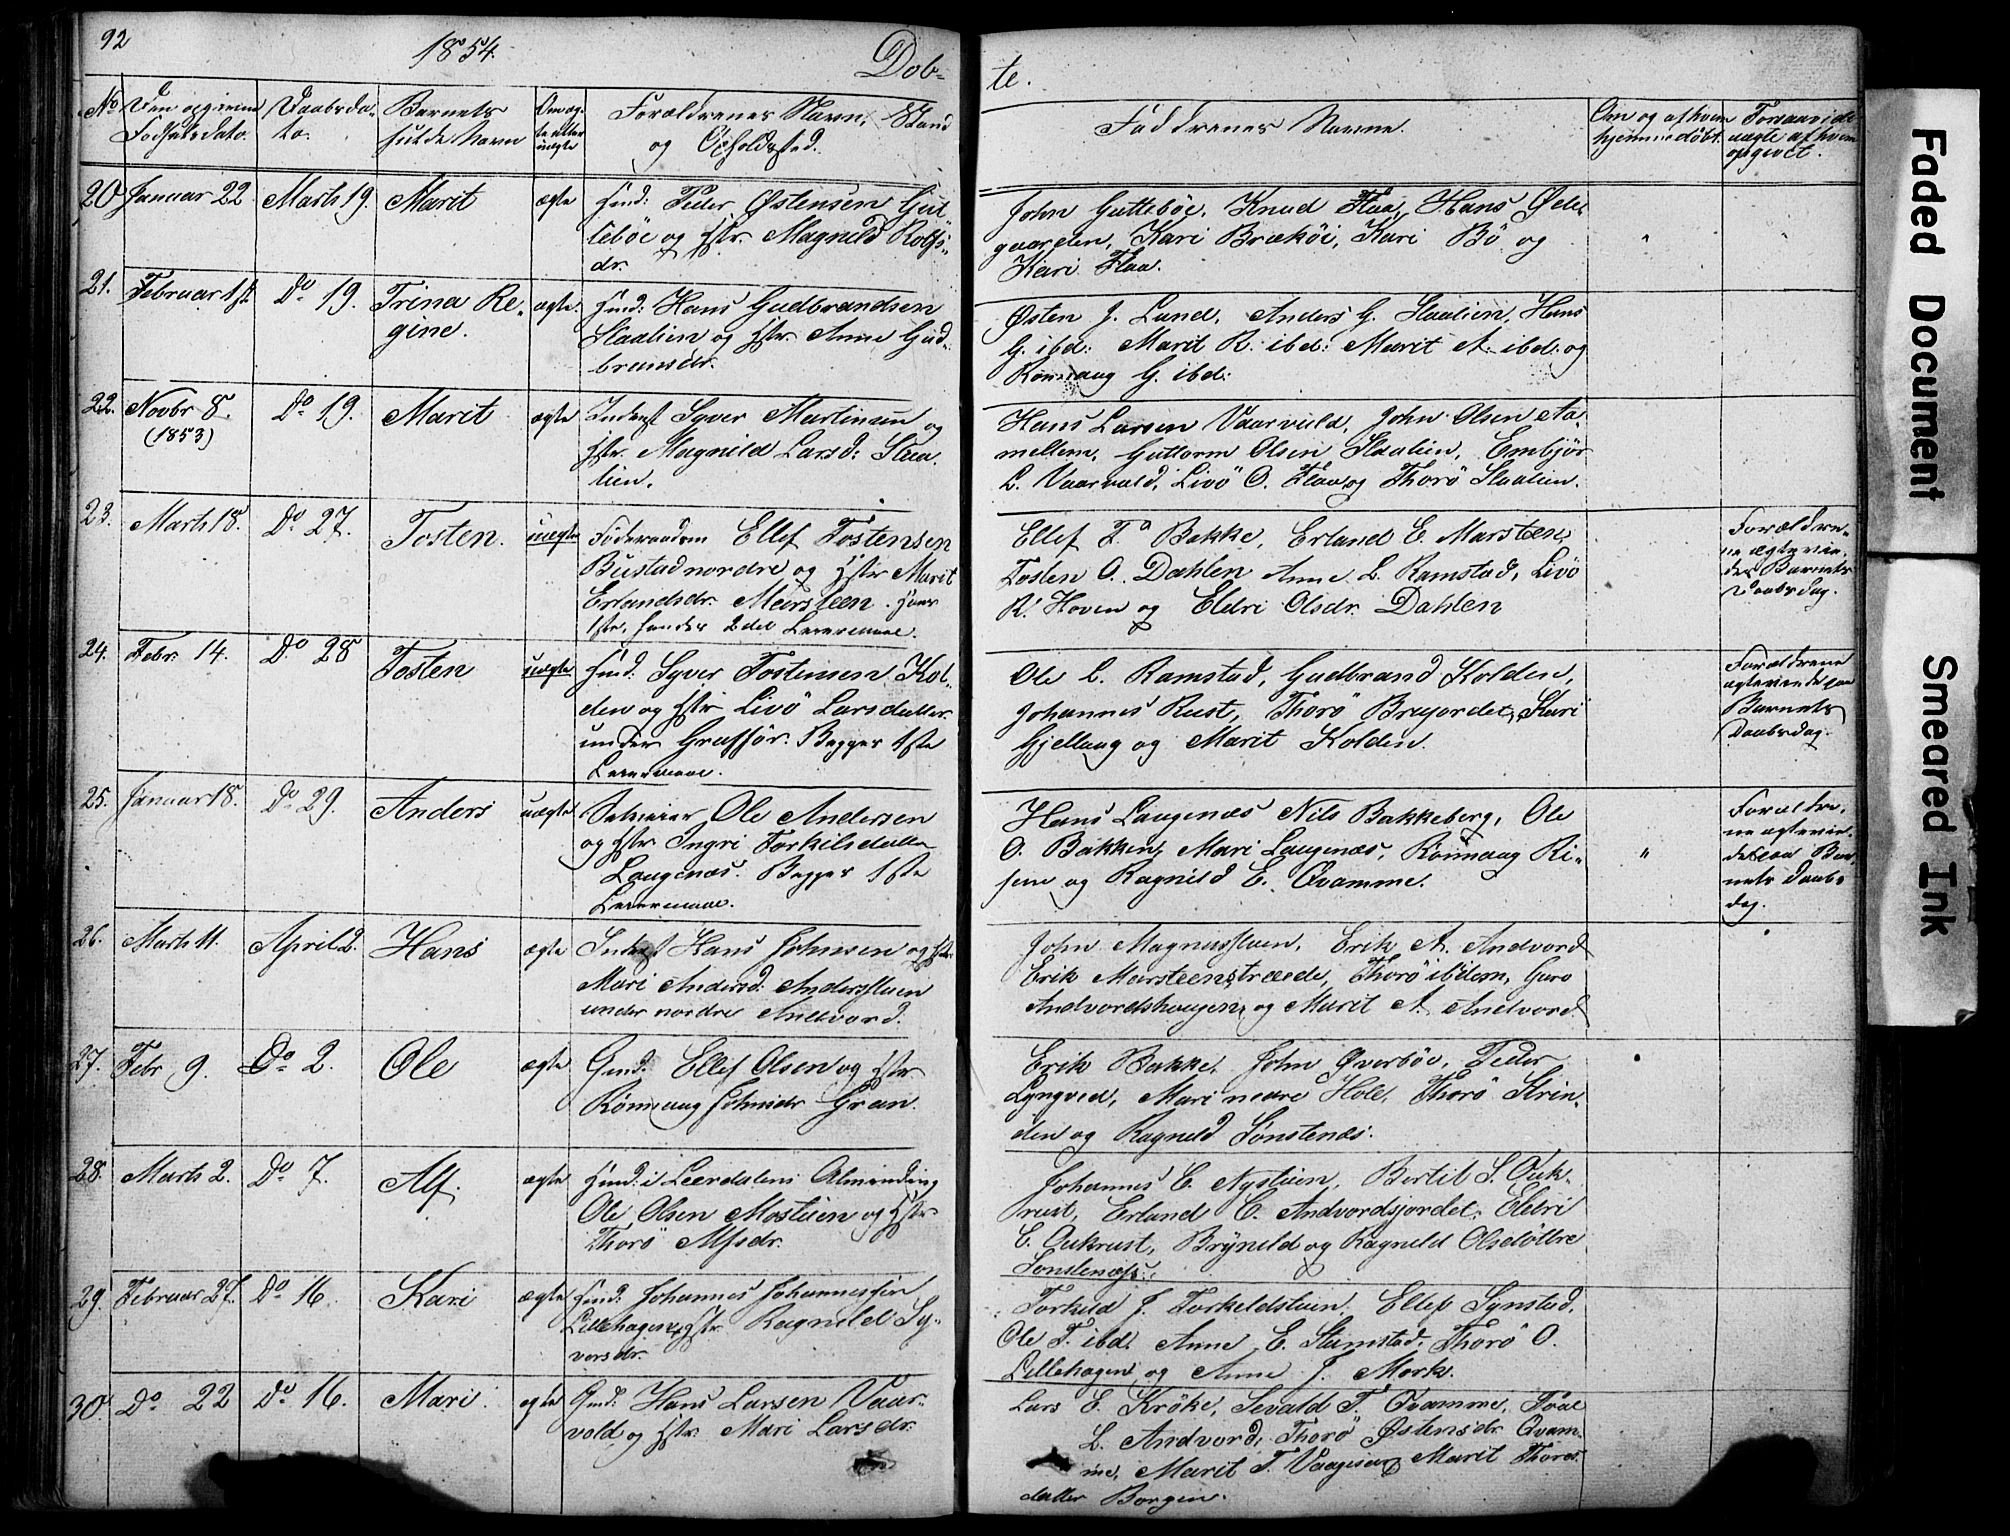 92
1854.
Dob-
te.
No
Den opgivne
Fødselsdato.
Daabsda-
to.
Barnets
fulde Navn
Om æg-
te eller
uægte
Forældrenes Navn, Stand
og Opholdssted.
Faddrenes Navne.
Om og af hvem
hjemmedøbt.
opgivet.
20 Januar 22 Marts 19. Marit ægte Gmd: Peder Østensen Gut-
tebøe og Hstr. Magnild Rolfs-
dr.
John Guttebøe, Knud Flaa, Hans Øde-
gaarden, Kari Brækøi, Kari Bö og
Kari Flaa.
21. Februar 1ste Do 19. Trina Re-
gine.
ægte. Hmd: Hans Gudbrandsen
Slaalien og Hstr. Anne Gud-
bransdr.
Østen J. Lund, Anders G. Slaalien, Hans
G. ibd: Marit R. ibd: Marit A. ibd: og
Rönnaug G. ibd:
22. Novbr 8.
(1853)
Do 19. Marit ægte Inderst Syver Martinsen og
Hstr. Magnild Larsd: Slaa-
lien.
Hans Larsen Vaarvold, John Olsen Aa-
mellem, Guttorm Olsen Slaalien, Embjør
L. Vaarvold, Livö O. Flaa og Thorö Slaalien.
23. Marts 18. Do 27. Tosten. uægte Föderaadsm Ellef Tostensen
Bustad nordre og Hstr Marit
Erlandsdr. Marsteen. Hans
1ste, hendes 2det Leiermaal.
Ellef T. Bakke, Erland E. Marsteen,
Tosten O. Dahlen Anne L. Ramstad, Livö
R. Hoven og Eldri Olsdr. Dahlen
Forældre-
ne ægtevie-
des Barnets
Daabsdag.
24. Febr. 14. Do 28 Tosten uægte Hmd: Syver Tostensen Kol-
den og Hstr Livö Larsdatter
under Graffer. Begges 1ste
Leiermaal.
Ole L. Ramstad, Gudbrand Kolden,
Johannes Rust, Thorö Bræjordet, Kari
Gjellaug og Marit Kolden.
Forældrene
ægteviede paa
Barnets
Daabsdag.
25. Januar 18. Do 29. Anders uægte Selveier Ole Andersen
og Hstr Ingri Torkildsdatter
Laugenæs. Begges 1ste
Leiermaal.
Hans Laugenæs Nils Bakkeberg, Ole
O. Bakken, Mari Laugenæs, Rönnaug Ri-
sen og Ragnild E. Qvamme.
"
Forældre-
ne ægtevie-
det paa Bar-
nets Daabs
dag.
26. Marts 11. April 2. Hans ægte Inderst Hans Johnsen og Hstr.
Mari Andersd: Andersstuen
under nordre Andvord.
John Magnusstuen, Erik A. Andvord
Erik Marsteenstræde, Thorö ibidem, Guro
Andvordshaugen, og Marit A. Andvord
27. Febr 9. Do 2. Ole ægte Gmd: Ellef Olsen og Hstr.
Rönnaug Johnsdr Gran.
Erik Bakke, John Øverböe, Peder
Lyngved, Mari nedre Hole, Thorö Strin-
den og Ragnild Sönstenæs.
28. Marts 2. Do 7. Alf. ægte Hmd: i Leerdalens Alminding
Ole Olsen Mostuen og Hstr
Thorö Alfsdr.
Johannes E. Nystuen, Bertil S. Ouk-
rust, Erland C. Andvordsjordet, Eldri
E. Oukrust, Brynild og Ragnild Olsdöttre
Sonstenæs.
29. Februar 27. Do 16. Kari ægte Hmd: Johannes Johannessen
Lillehagen, Hstr. Ragnild Sy-
versdr.
Torkild J. Torkeldstuen, Ellef Synstad,
Ole T. ibd, Anne E. Stamstad, Thorö O.
Lillehagen og Anne J. Mork.
30. Do 22 Do 16. Mari ægte Gmd: Hans Larsen Vaar-
vold og Hstr. Mari Larsdr.
Lars E. Kröke, Sevald T. Qvamme, Paal
L. Andvord, Thorö Østensdr. Qvam-
me, Marit T. Vaagesar, Marit Thores-
datter Borgen.
Faded Document
Smeared Ink